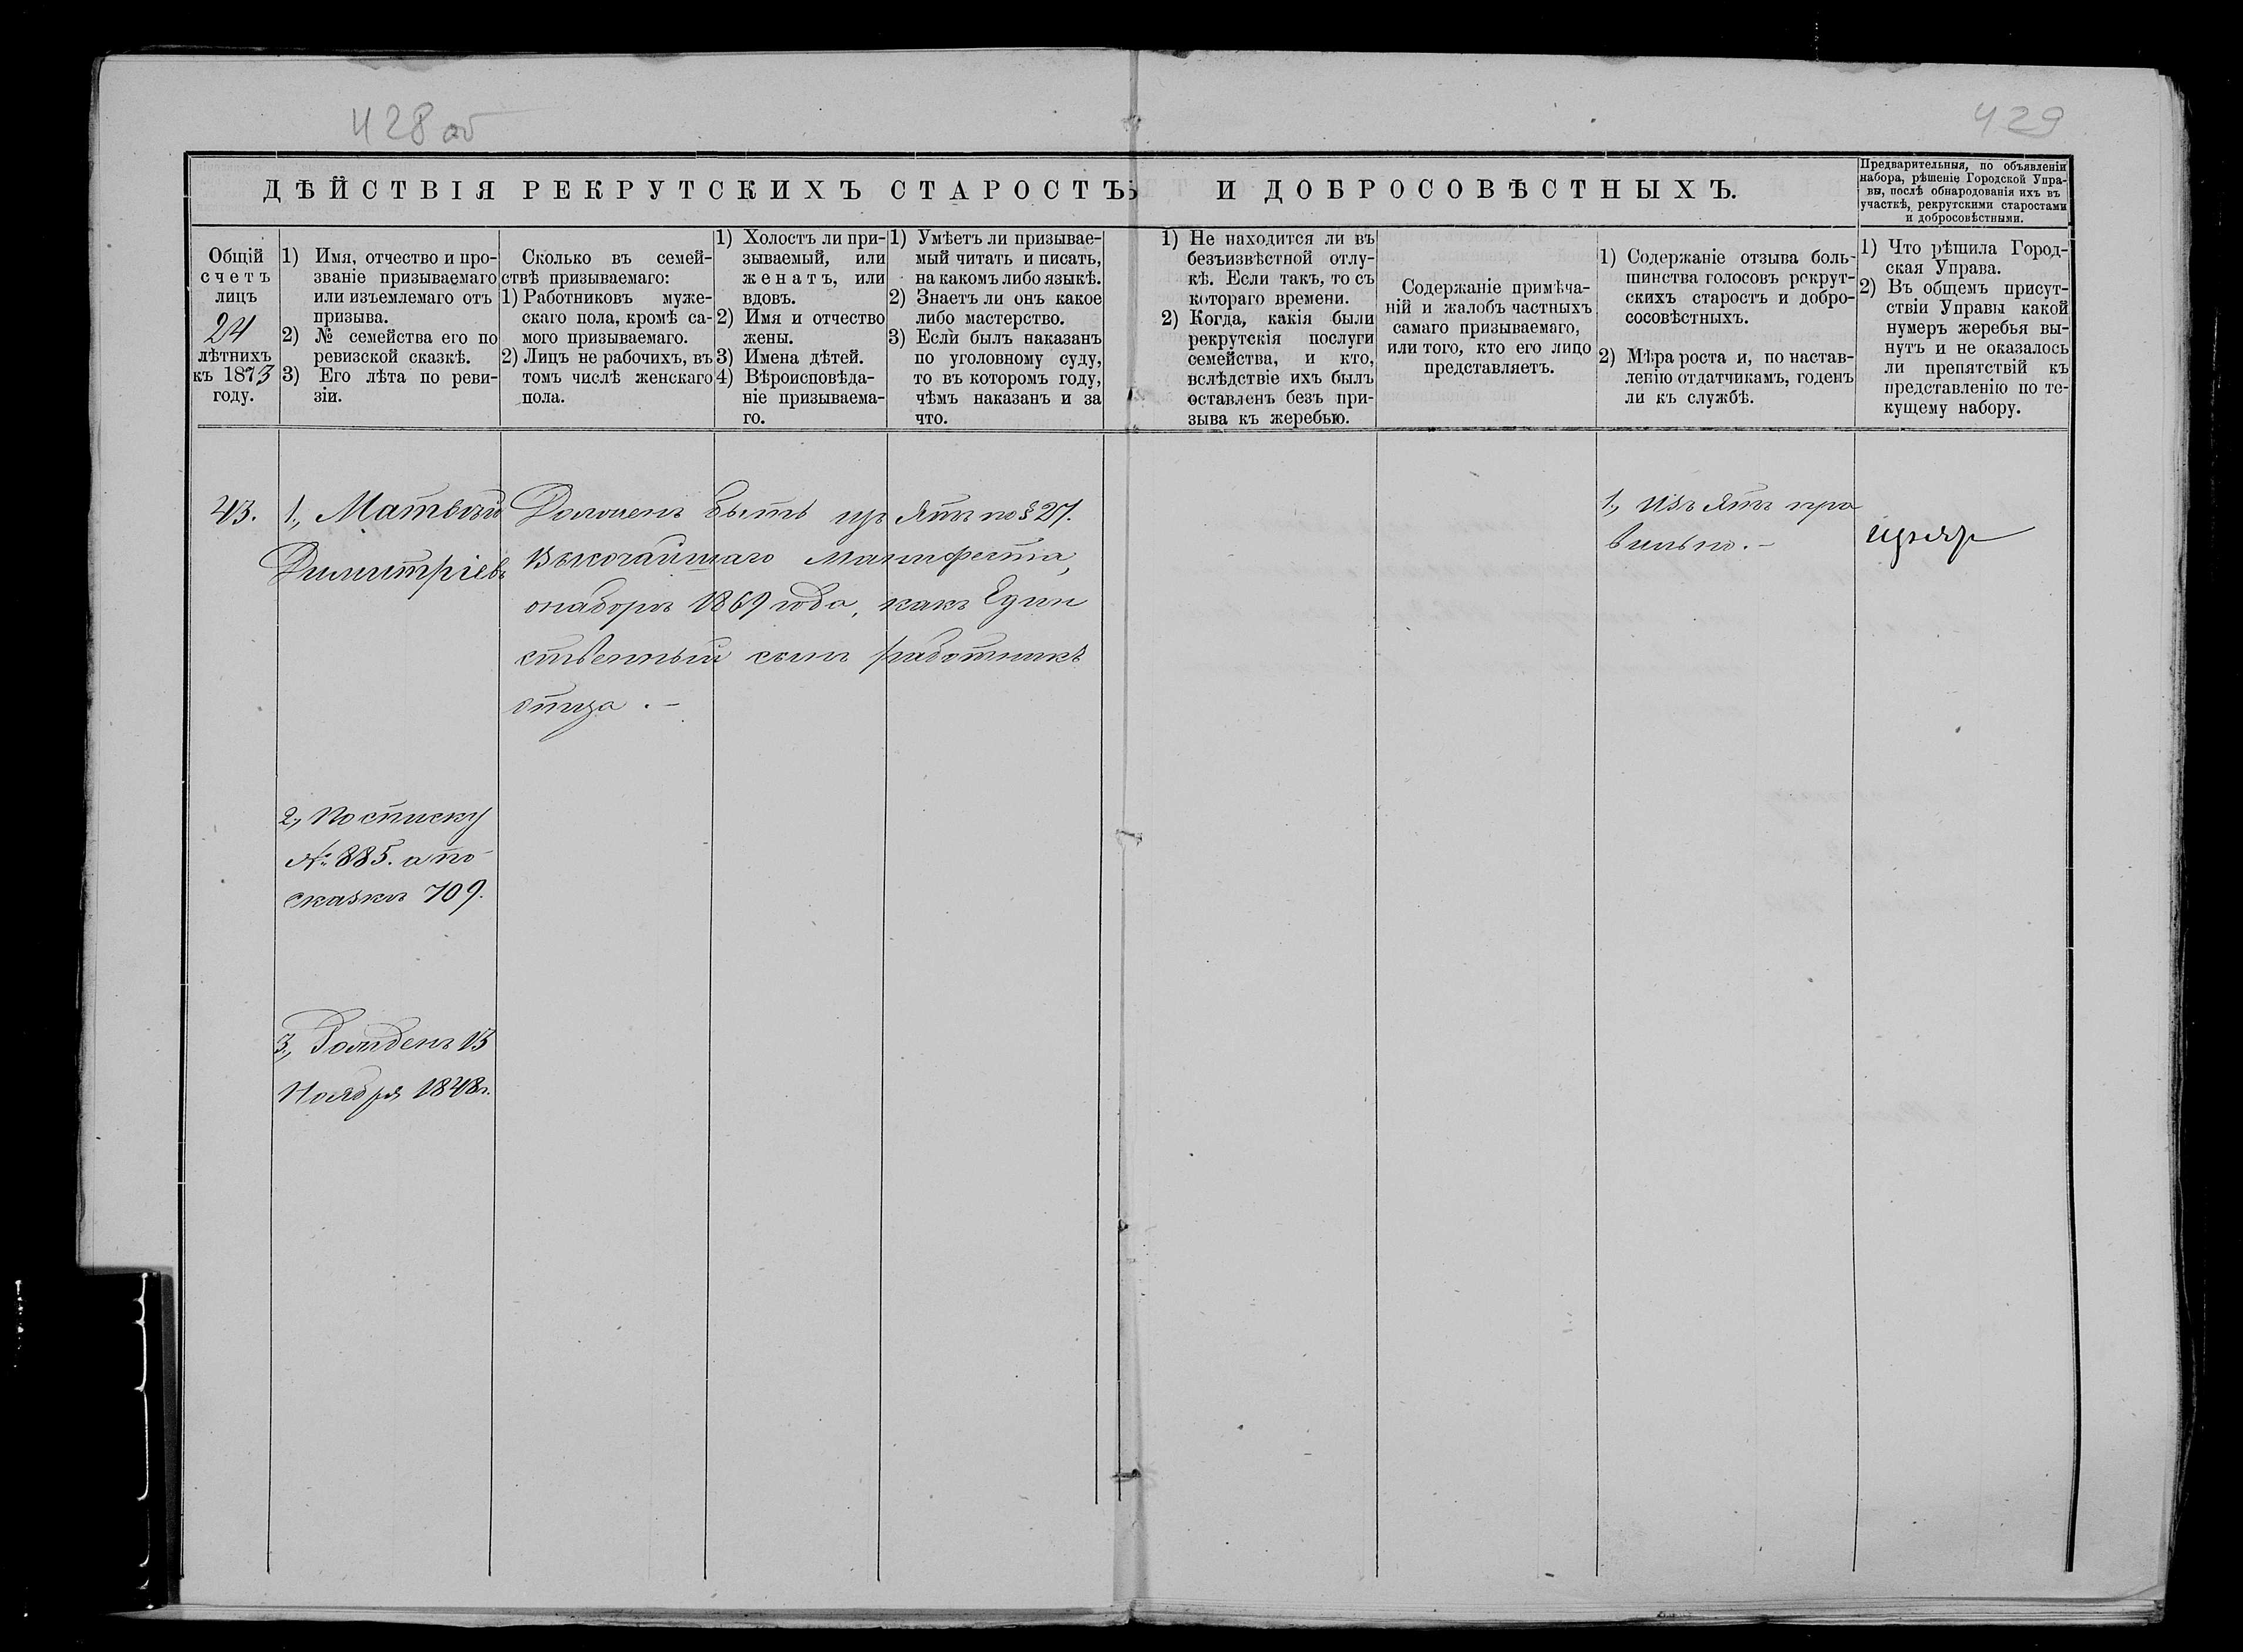 428 об
429
ДѢЙСТВІЯ РЕКРУТСКИХЪ СТАРОСТЪ И ДОБРОСОВѢСТНЫХЪ.
Предварительныя, по объявленіи
набора, рѣшеніе Городской Упра-
вы, послѣ обнародованія ихъ въ
участкѣ, рекрутскими старостами
и добросовѣстными.
Общій
счетъ
лицъ
24
лѣтнихъ
къ 1873
году.
1) Имя, отчество и про-
званіе призываемаго
или изъемлемаго отъ
призыва.
2) № семейства его по
ревизской сказкѣ.
3) Его лѣта по реви-
зіи.
Сколько въ семей-
ствѣ призываемаго:
1) Работниковъ муже-
скаго пола, кромѣ са-
мого призываемаго.
2) Лицъ не рабочихъ, въ
томъ числѣ женскаго
пола.
1) Холостъ ли при-
зываемый, или
женатъ, или
вдовъ.
2) Имя и отчество
жены.
3) Имена дѣтей.
4) Вѣроисповѣда-
ніе призываема-
го.
1) Умѣетъ ли призывае-
мый читать и писать,
на какомъ либо языкѣ.
2) Знаетъ ли онъ какое
либо мастерство.
3) Если былъ наказанъ
по уголовному суду,
то въ которомъ году,
чѣмъ наказанъ и за
что.
1) Не находится ли въ
безъизвѣстной отлу-
кѣ. Если такъ, то съ
котораго времени.
2) Когда, какія были
рекрутскія послуги
семейства, и кто,
вслѣдствіе ихъ былъ
оставленъ безъ при-
зыва къ жеребью.
Содержаніе примѣча-
ній и жалобъ частныхъ
самаго призываемаго,
или того, кто его лицо
представляетъ.
1) Содержаніе отзыва боль-
шинства голосовъ рекрут-
скихъ старостъ и добро-
сосовѣстныхъ.
2) Мѣра роста и, по настав-
ленію отдатчикамъ, годенъ
ли къ службѣ.
1) Что рѣшила Город-
ская Управа.
2) Въ общемъ присут-
ствіи Управы какой
нумеръ жеребья вы-
нутъ и не оказалось
ли препятствій къ
представленію по те-
кущему набору.
43.
1., Матвѣй
Димитріевъ
Долженъ быть изъятъ по § 27.
Высочайшаго Манифеста,
о наборѣ 1869 года, какъ Един
ственный сынъ работникъ
отца. –
1., Изъятъ пра
вильно. –
2., По списку
№ 885. а по
сказкѣ 709.
3., Рожденъ 13
Ноября 1848 г.